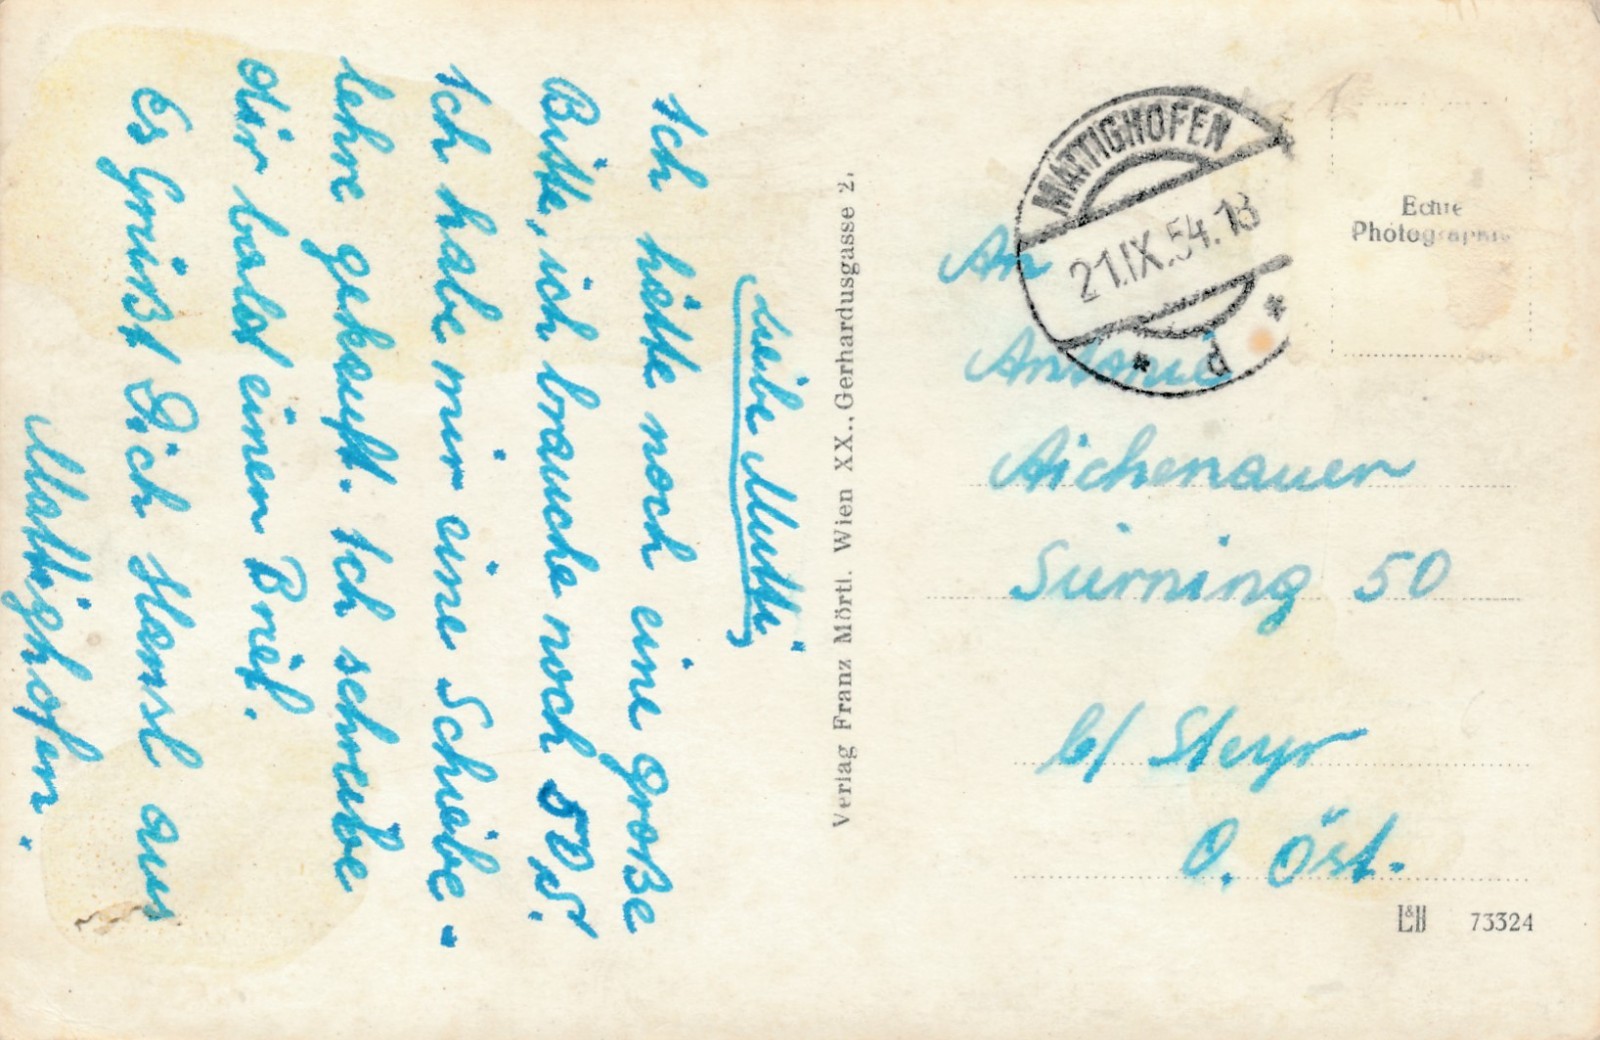 Leibe Mutti
Ich hätte noch eine große
Bitte, ich brauche noch 50 S.
Ich habe mir eine Scheibe-
lehre gekauft. Ich schreibe
dir bald einen Brief.
Es Grüßt Dich Hansl aus
Mattighofen.
Verlag Franz Mörtl. Wien XX., Gerhardusgasse 2.
MATTIGHOFEN
21.IX.54.18
* d *
Echte
Photographie
An
Antonie
Aichenauer
Sierning 50
b/ Steyr
O. Öst.
L&H 73324